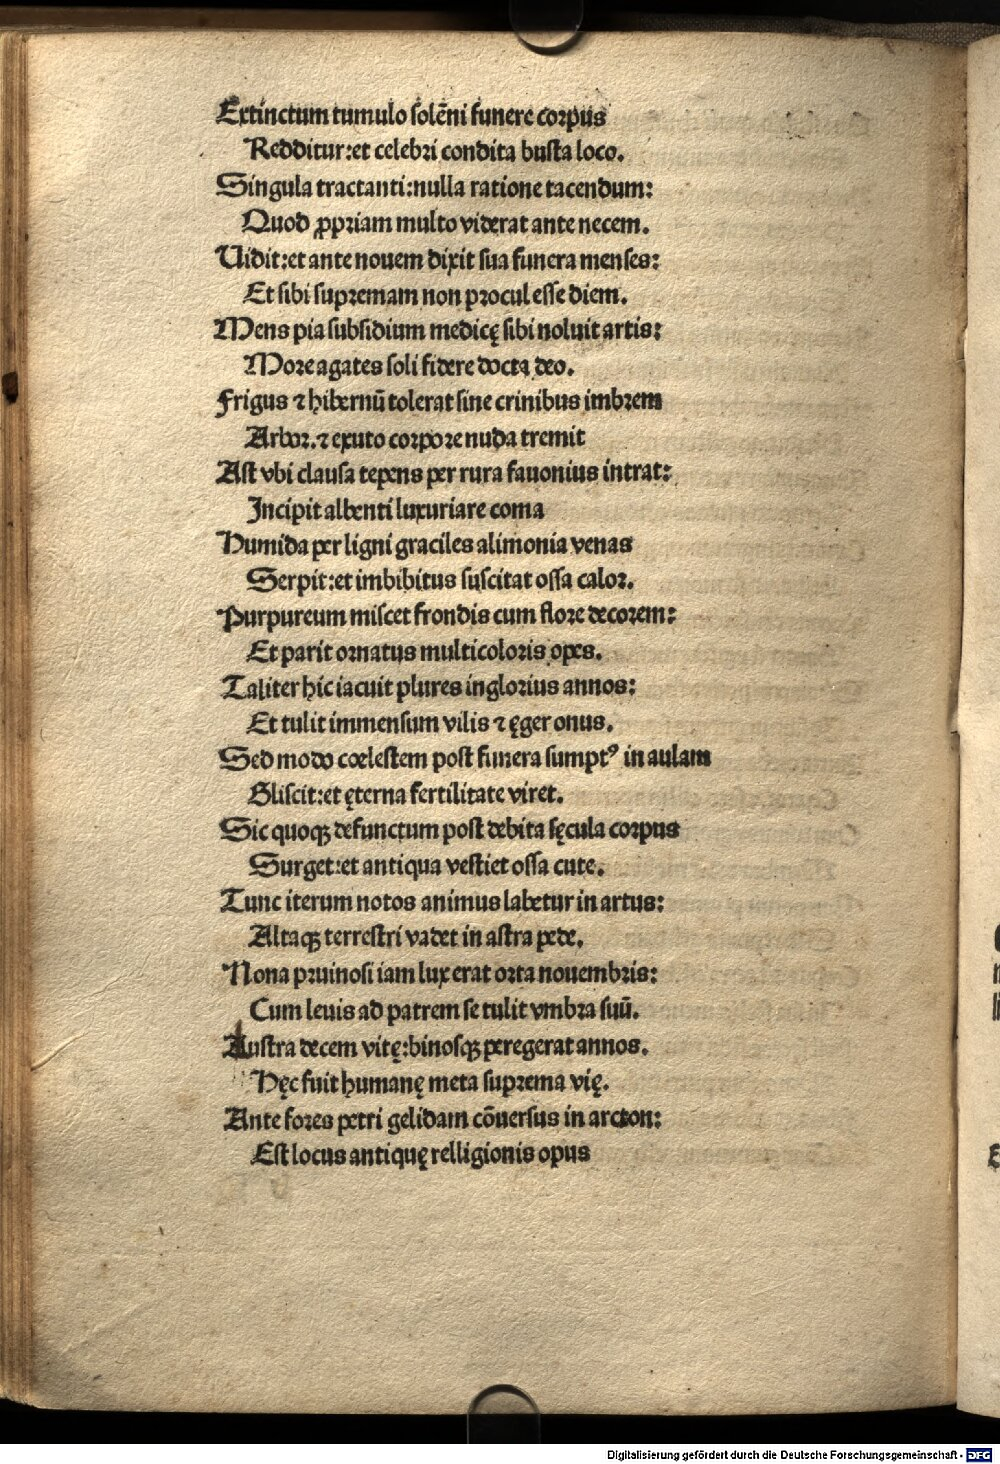 Extinctum tumulo solēni funere corpus
Redditur:et celebri condita busta loco.
Singula tractanti:nulla ratione tacendum:
Quod ꝓpriam multo viderat ante necem.
Uidit:et ante nouem dixit sua funera menses:
Et sibi supremam non procul esse diem.
Mens pia subsidium medicę sibi noluit artis:
More agates soli fidere docta deo.
Frigus ⁊ hibernū tolerat sine crinibus imbrem
Arbor.⁊ exuto corpore nuda tremit
Ast vbi clausa tepens per rura fauonius intrat:
Incipit albenti luxuriare coma
Humida per ligni graciles alimonia venas
Serpit:et imbibitus suscitat ossa calor.
Purpureum miscet frondis cum flore decorem:
Et parit ornatus multicoloris opes.
Taliter hic iacuit plures inglorius annos:
Et tulit immensum vilis ⁊ ęger onus.
Sed modo cœlestem post funera sumptꝰ in aulam
Gliscit:et ęterna fertilitate viret.
Sic quoqꝫ defunctum post debita sęcula corpus
Surget:et antiqua vestiet ossa cute.
Tunc iterum notos animus labetur in artus:
Altaqꝫ terrestri vadet in astra pede.
Nona pruinosi iam lux erat orta nouembris:
Cum leuis ad patrem se tulit vmbra suū.
Lustra decem vitę:binosqꝫ peregerat annos.
Hęc fuit humanę meta suprema vię.
Ante fores petri gelidam cōuersus in arcton:
Est locus antiquę relligionis opus
Digitalisierung gefördert durch die Deutsche Forschungsgemeinschaft - DFG